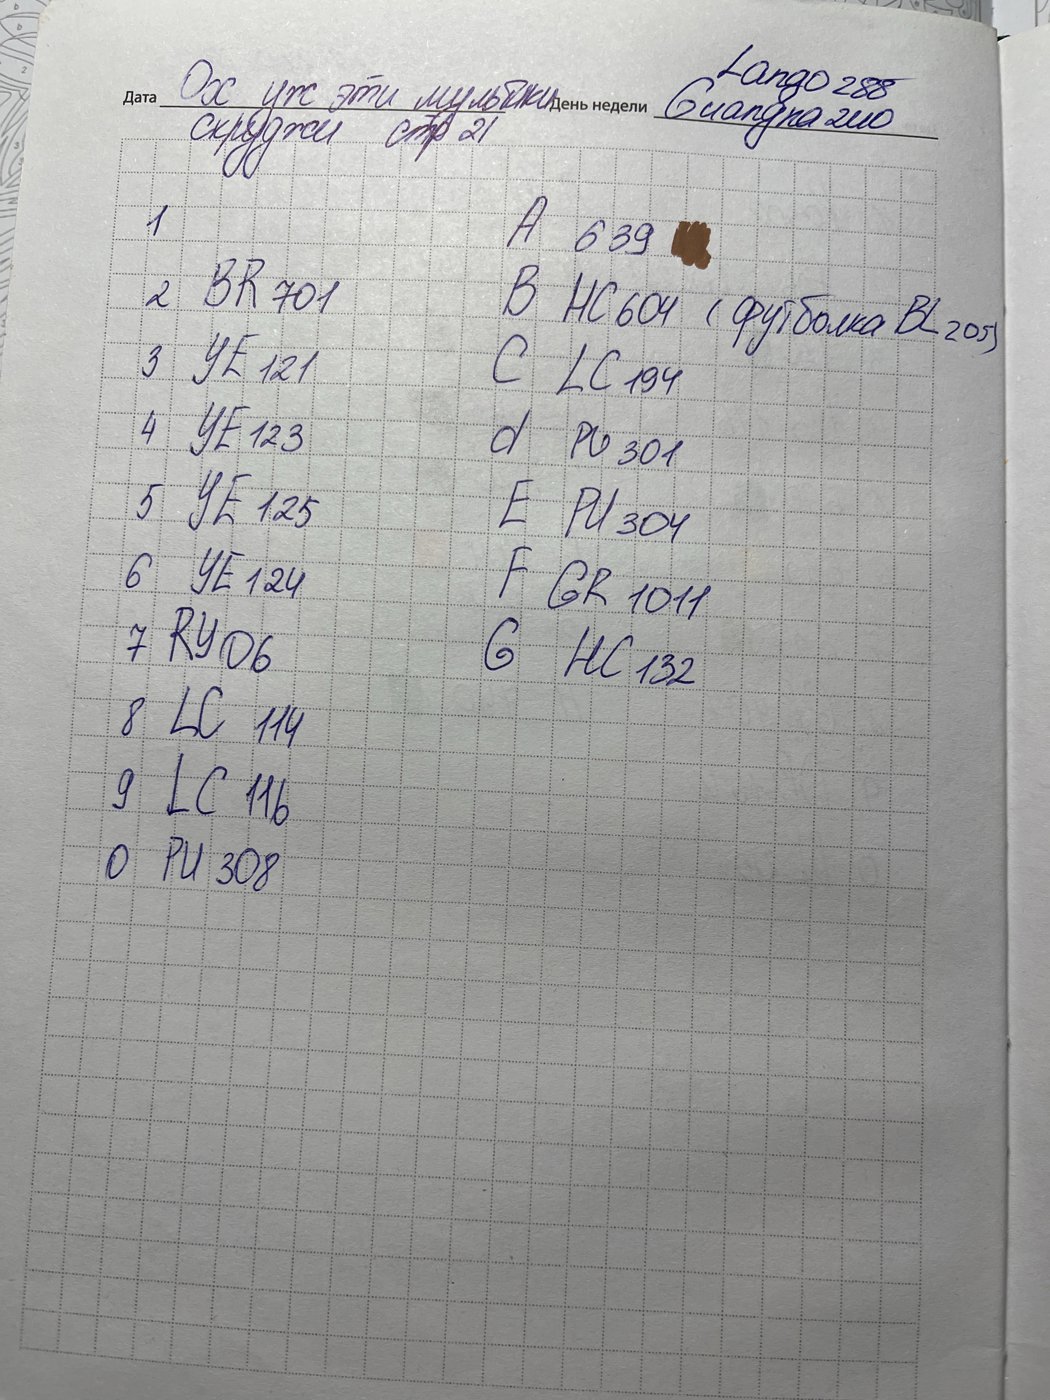 Lango 288
Дата Ох уж эти мультики День недели Guangna 240
скруджи стр 21
1
2 BR 701
3 YE 121
4 YE 123
5 YE 125
6 YE 124
7 RY 06
8 LC 114
9 LC 116
0 PU 308
A 639
B HC 604 (футболка BL 205)
C LC 194
d PU 301
E PU 304
F GR 1011
G HC 132